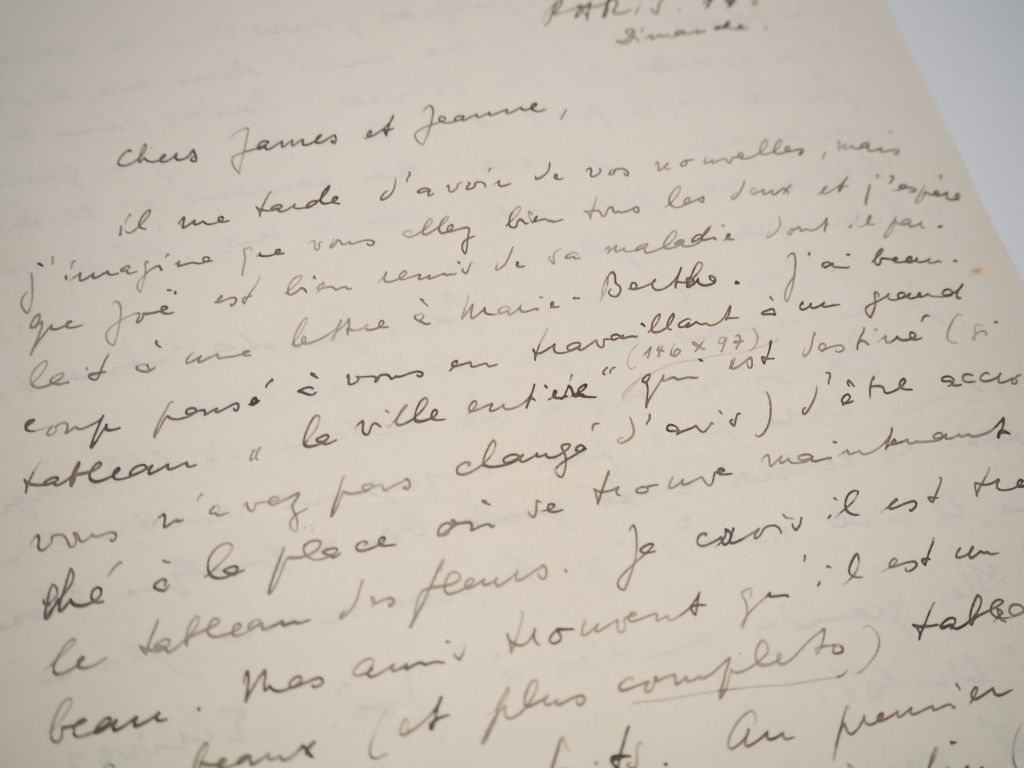 PARIS.
Dimanche.
Chers James et Jeanne,
il me tarde d'avoir de vos nouvelles, mais
j'imagine que vous allez bien tous les deux et j'espère
que Joë est bien remis de sa maladie dont il par-
lait à une lettre à Marie-Berthe. J'ai beau-
coup pensé à vous en travaillant à un grand
(146 x 97)
tableau "la ville entière" qui est destiné (si
vous n'avez pas changé d'avis) d'être accro
ché à la place où se trouve maintenant
le tableau des fleurs. Je crois il est tre
beau. Mes amis trouvent qu'il est un
beaux (et plus complets) table
Au premier